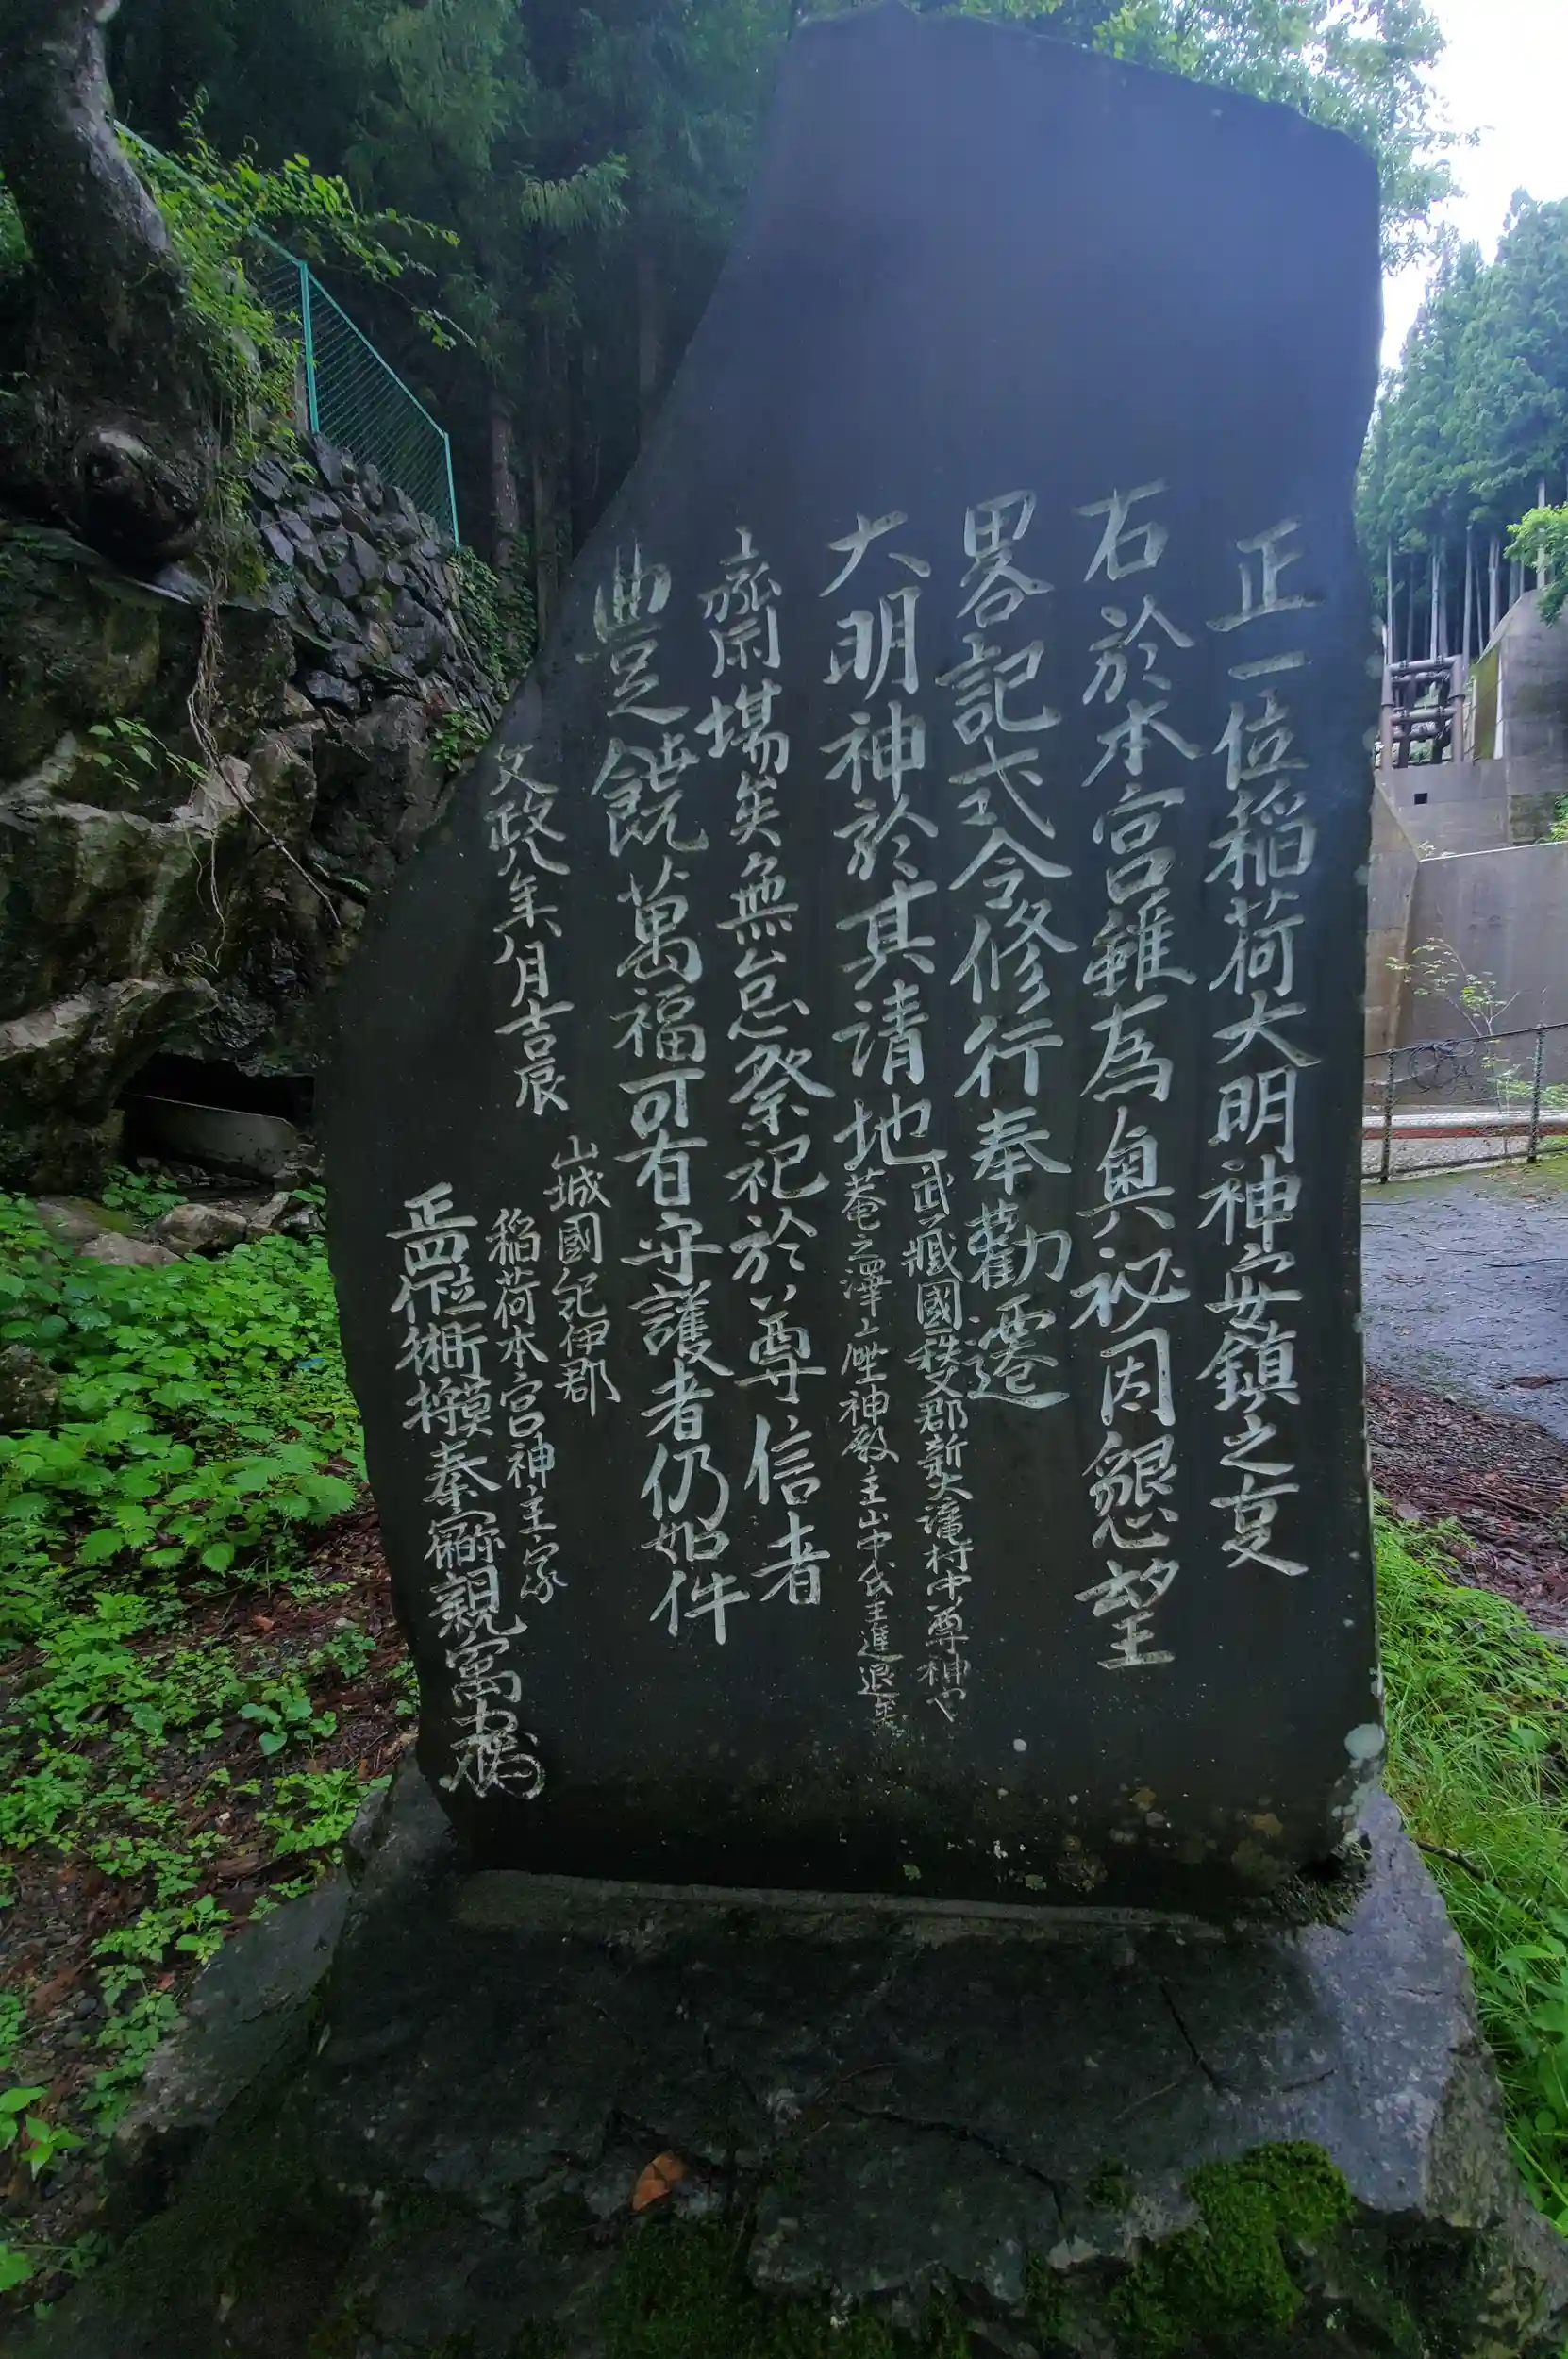 正一位稲荷大明神安鎮之夏
右於本宮雖為奥祕因懇望
畧記式令修行奉勸遷
大明神於其請地
武藏國秩父郡新大瀧村中尊神や
菴之澤上座神教主山中氏主進退
齋場矣無怠祭祀於尊信者
豊饒萬福可有守護者仍如件
文政八年八月吉辰
山城國紀伊郡
稲荷本宮神主家
正四位
親寓